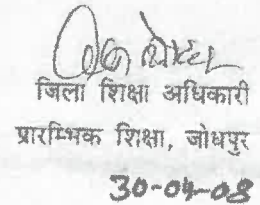 जिला शिक्षा अधिकारी
प्रारम्भिक शिक्षा, जोधपुर
30-04-08